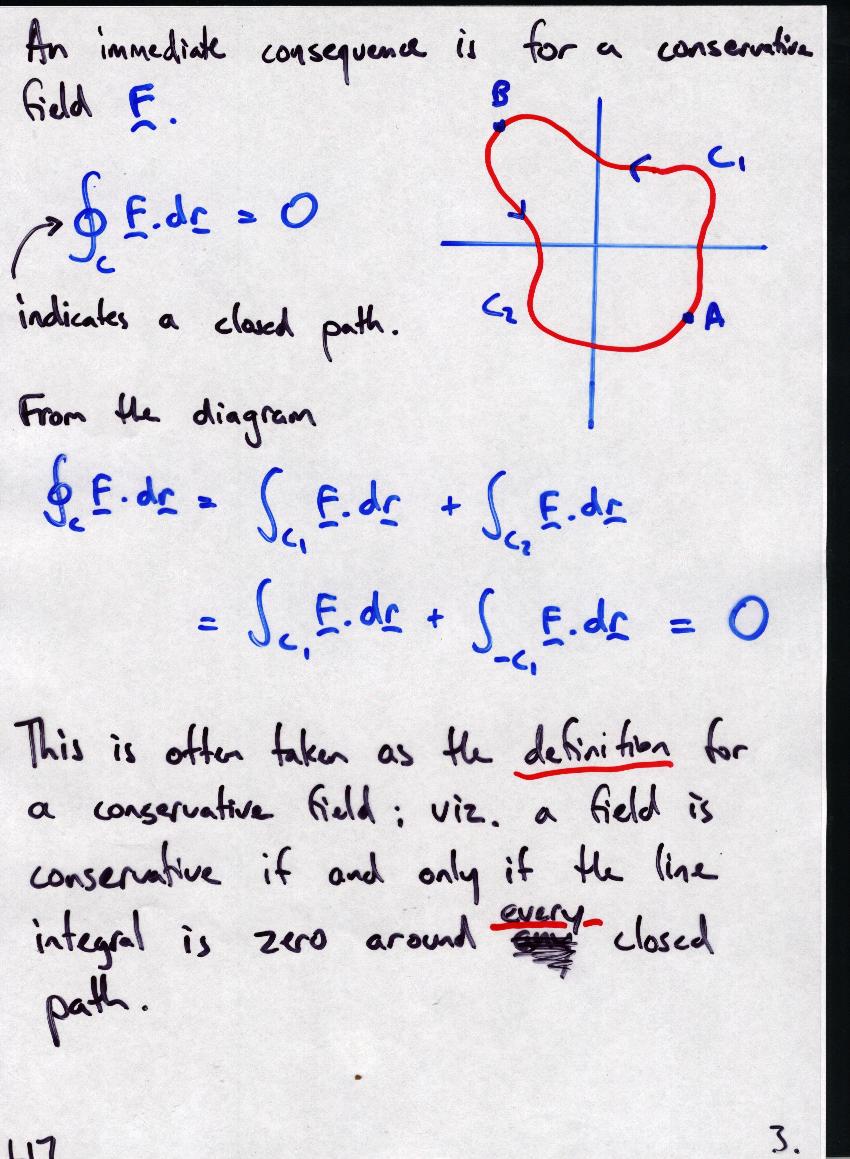 An immediate consequence is for a conservative
field F.
B
C₁
∮_C F.dr = 0
C₂
A
indicates a closed path.
From the diagram
∮_C F.dr = ∫_C₁ F.dr + ∫_C₂ F.dr
= ∫_C₁ F.dr + ∫_-C₁ F.dr = 0
This is often taken as the definition for
a conservative field; viz. a field is
conservative if and only if the line
integral is zero around every closed
path.
L17
3.